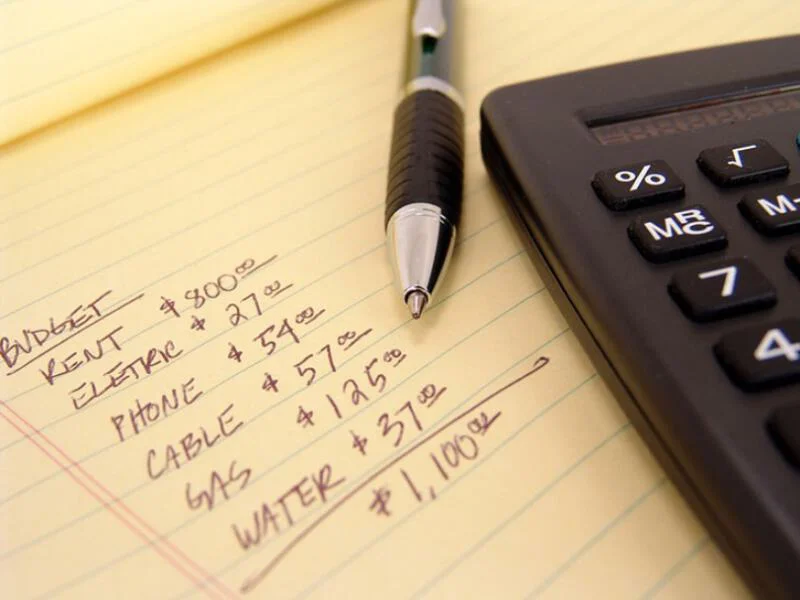 BUDGET
RENT $800.00
ELETRIC $27.00
PHONE $54.00
CABLE $57.00
GAS $125.00
WATER $37.00
$1,100.00
% √
MRC M-
7
4